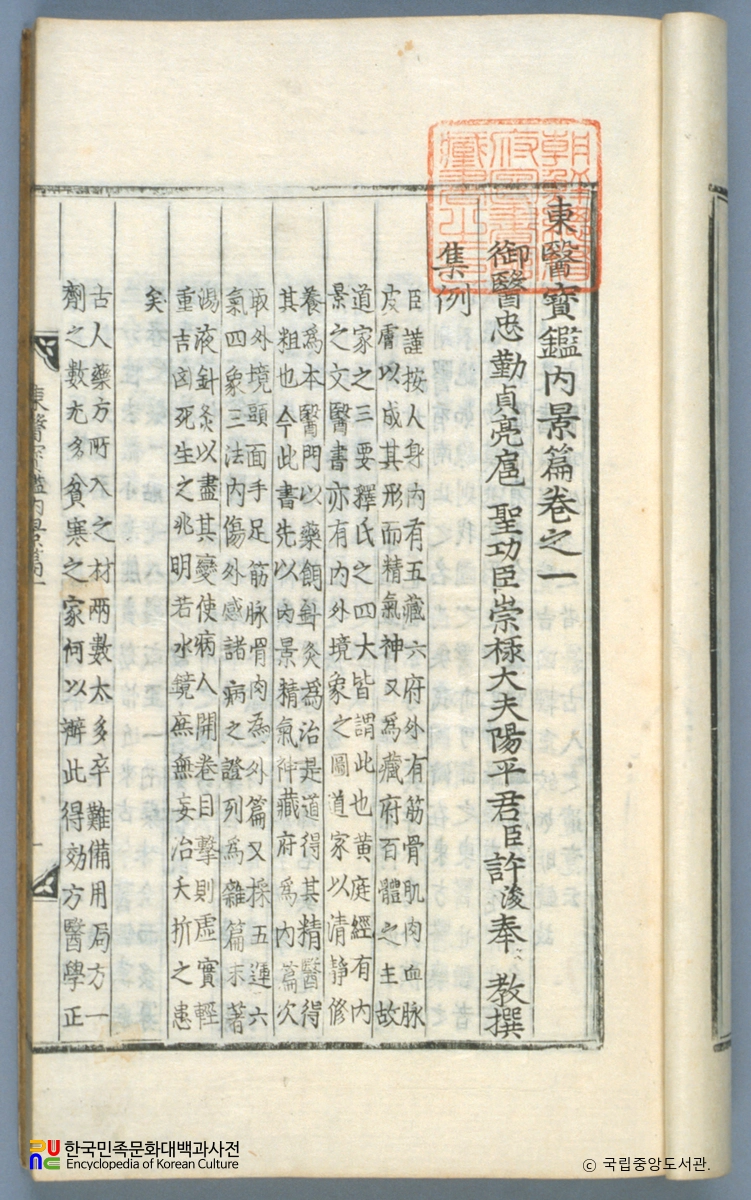 東醫寶鑑內景篇卷之一
御醫忠勤貞亮扈 聖功臣崇祿大夫陽平君臣許浚奉 教撰
集例
臣謹按人身內有五藏六府外有筋骨肌肉血脉
皮膚以成其形而精氣神又爲藏府百體之主故
道家之三要釋氏之四大皆謂此也黄庭經有內
景之文醫書亦有內外境象之圖道家以清靜修
養爲本醫門以藥餌針灸爲治是道得其精醫得
其粗也今此書先以內景精氣神藏府爲內篇次
取外境頭面手足筋脉骨肉爲外篇又採五運六
氣四象三法內傷外感諸病之證列爲雜篇末著
湯液針灸以盡其變使病人開卷目擊則虛實輕
重吉凶死生之兆明若水鏡庶無妄治夭折之患
矣
古人藥方所入之材兩數太多卒難備用局方一
劑之數尤多貧寒之家何以辦此得効方醫學正
東醫寶鑑內景篇一
朝鮮總督府圖書館藏書之印
한국민족문화대백과사전
Encyclopedia of Korean Culture
© 국립중앙도서관.